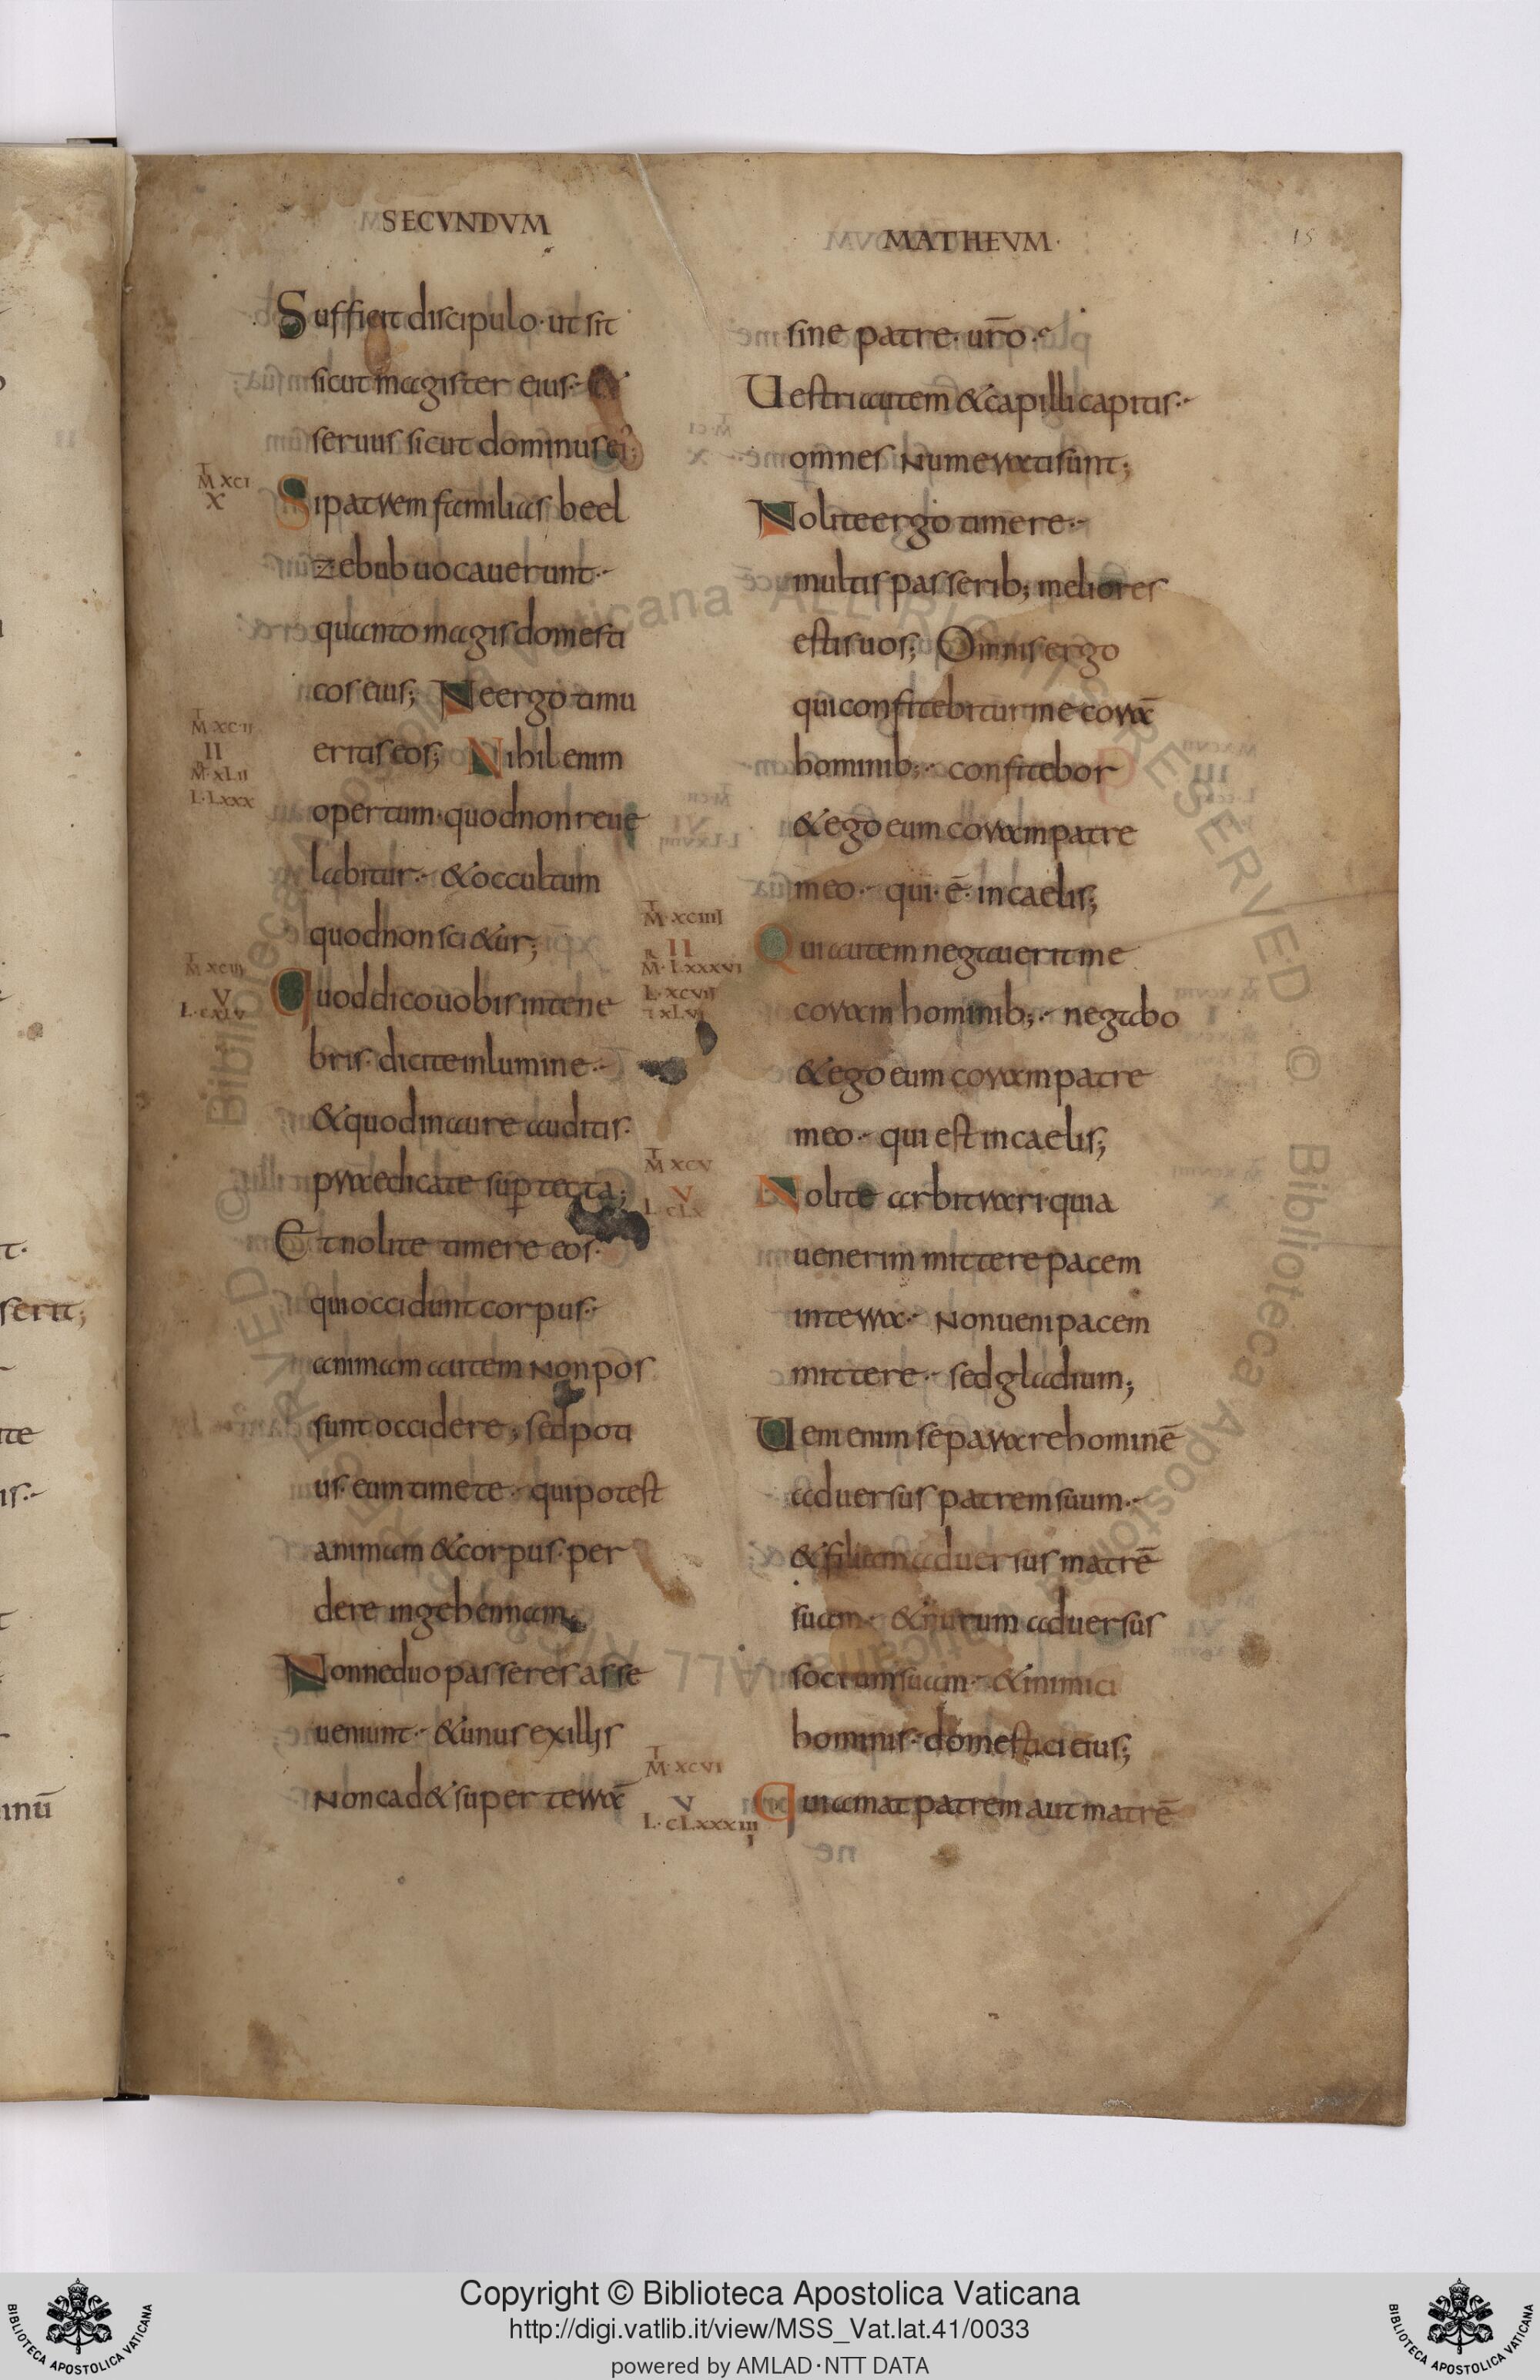 SECVNDVM
Sufficit discipulo· ut sit
sicut magister eius·- &
seruus sicut dominus ei;
T
M XCI
X
Si patrem familias beel
zebub uocauerunt·-
quanto magis domesti
cos eius; Ne ergo timu
T
M XCII
II
R
M·XLII
L·LXXX
eritis eos; Nihil enim
opertum· quod non reue
labitur·- & occultum
quod non sci&ur;
T
M XCIII
V
L·CXLV
Quod dico uobis in tene
bris· dicite in lumine·-
& quod in aure auditis·
praedicate sup tecta;
Et nolite timere eos·
qui occidunt corpus·-
animam autem non pos
sunt occidere; sed poti
us· eum timete·- qui potest
animam & corpus· per
dere in gehennam;
Nonne duo passeres asse
ueniunt·- & unus ex illis
non cad& super terrā
MATHEVM·
15
sine patre· ur̄o·
Uestri autem & capilli capitis·-
omnes numerati sunt;
Nolite ergo timere·-
multis passerib; meliores
estis uos; Omnis ergo
qui confitebitur me corā
hominib;·- confitebor
& ego eum coram patre
meo·- qui· ē· in caelis;
T
M·XCIIII
II
R
M·LXXXVI
L·XCVII
Qui autem negauerit me
coram hominib;·- negabo
& ego eum coram patre
meo·- qui est in caelis;
T
M XCV
V
L·CLX
Nolite arbitrari· quia
uenerim mittere pacem
in terra·- Non ueni pacem
mittere·- sed gladium;
Ueni enim separare hominē
aduersus patrem suum·-
& filiam aduersus matrē
suam·- & nurum aduersus
socrum suam·- & inimici
hominis·- domestici eius;
T
M·XCVI
V
L·CLXXXIII
Qui amat patrem aut matrē
Copyright © Biblioteca Apostolica Vaticana
http://digi.vatlib.it/view/MSS_Vat.lat.41/0033
powered by AMLAD·NTT DATA
BIBLIOTECA APOSTOLICA VATICANA
BIBLIOTECA APOSTOLICA VATICANA